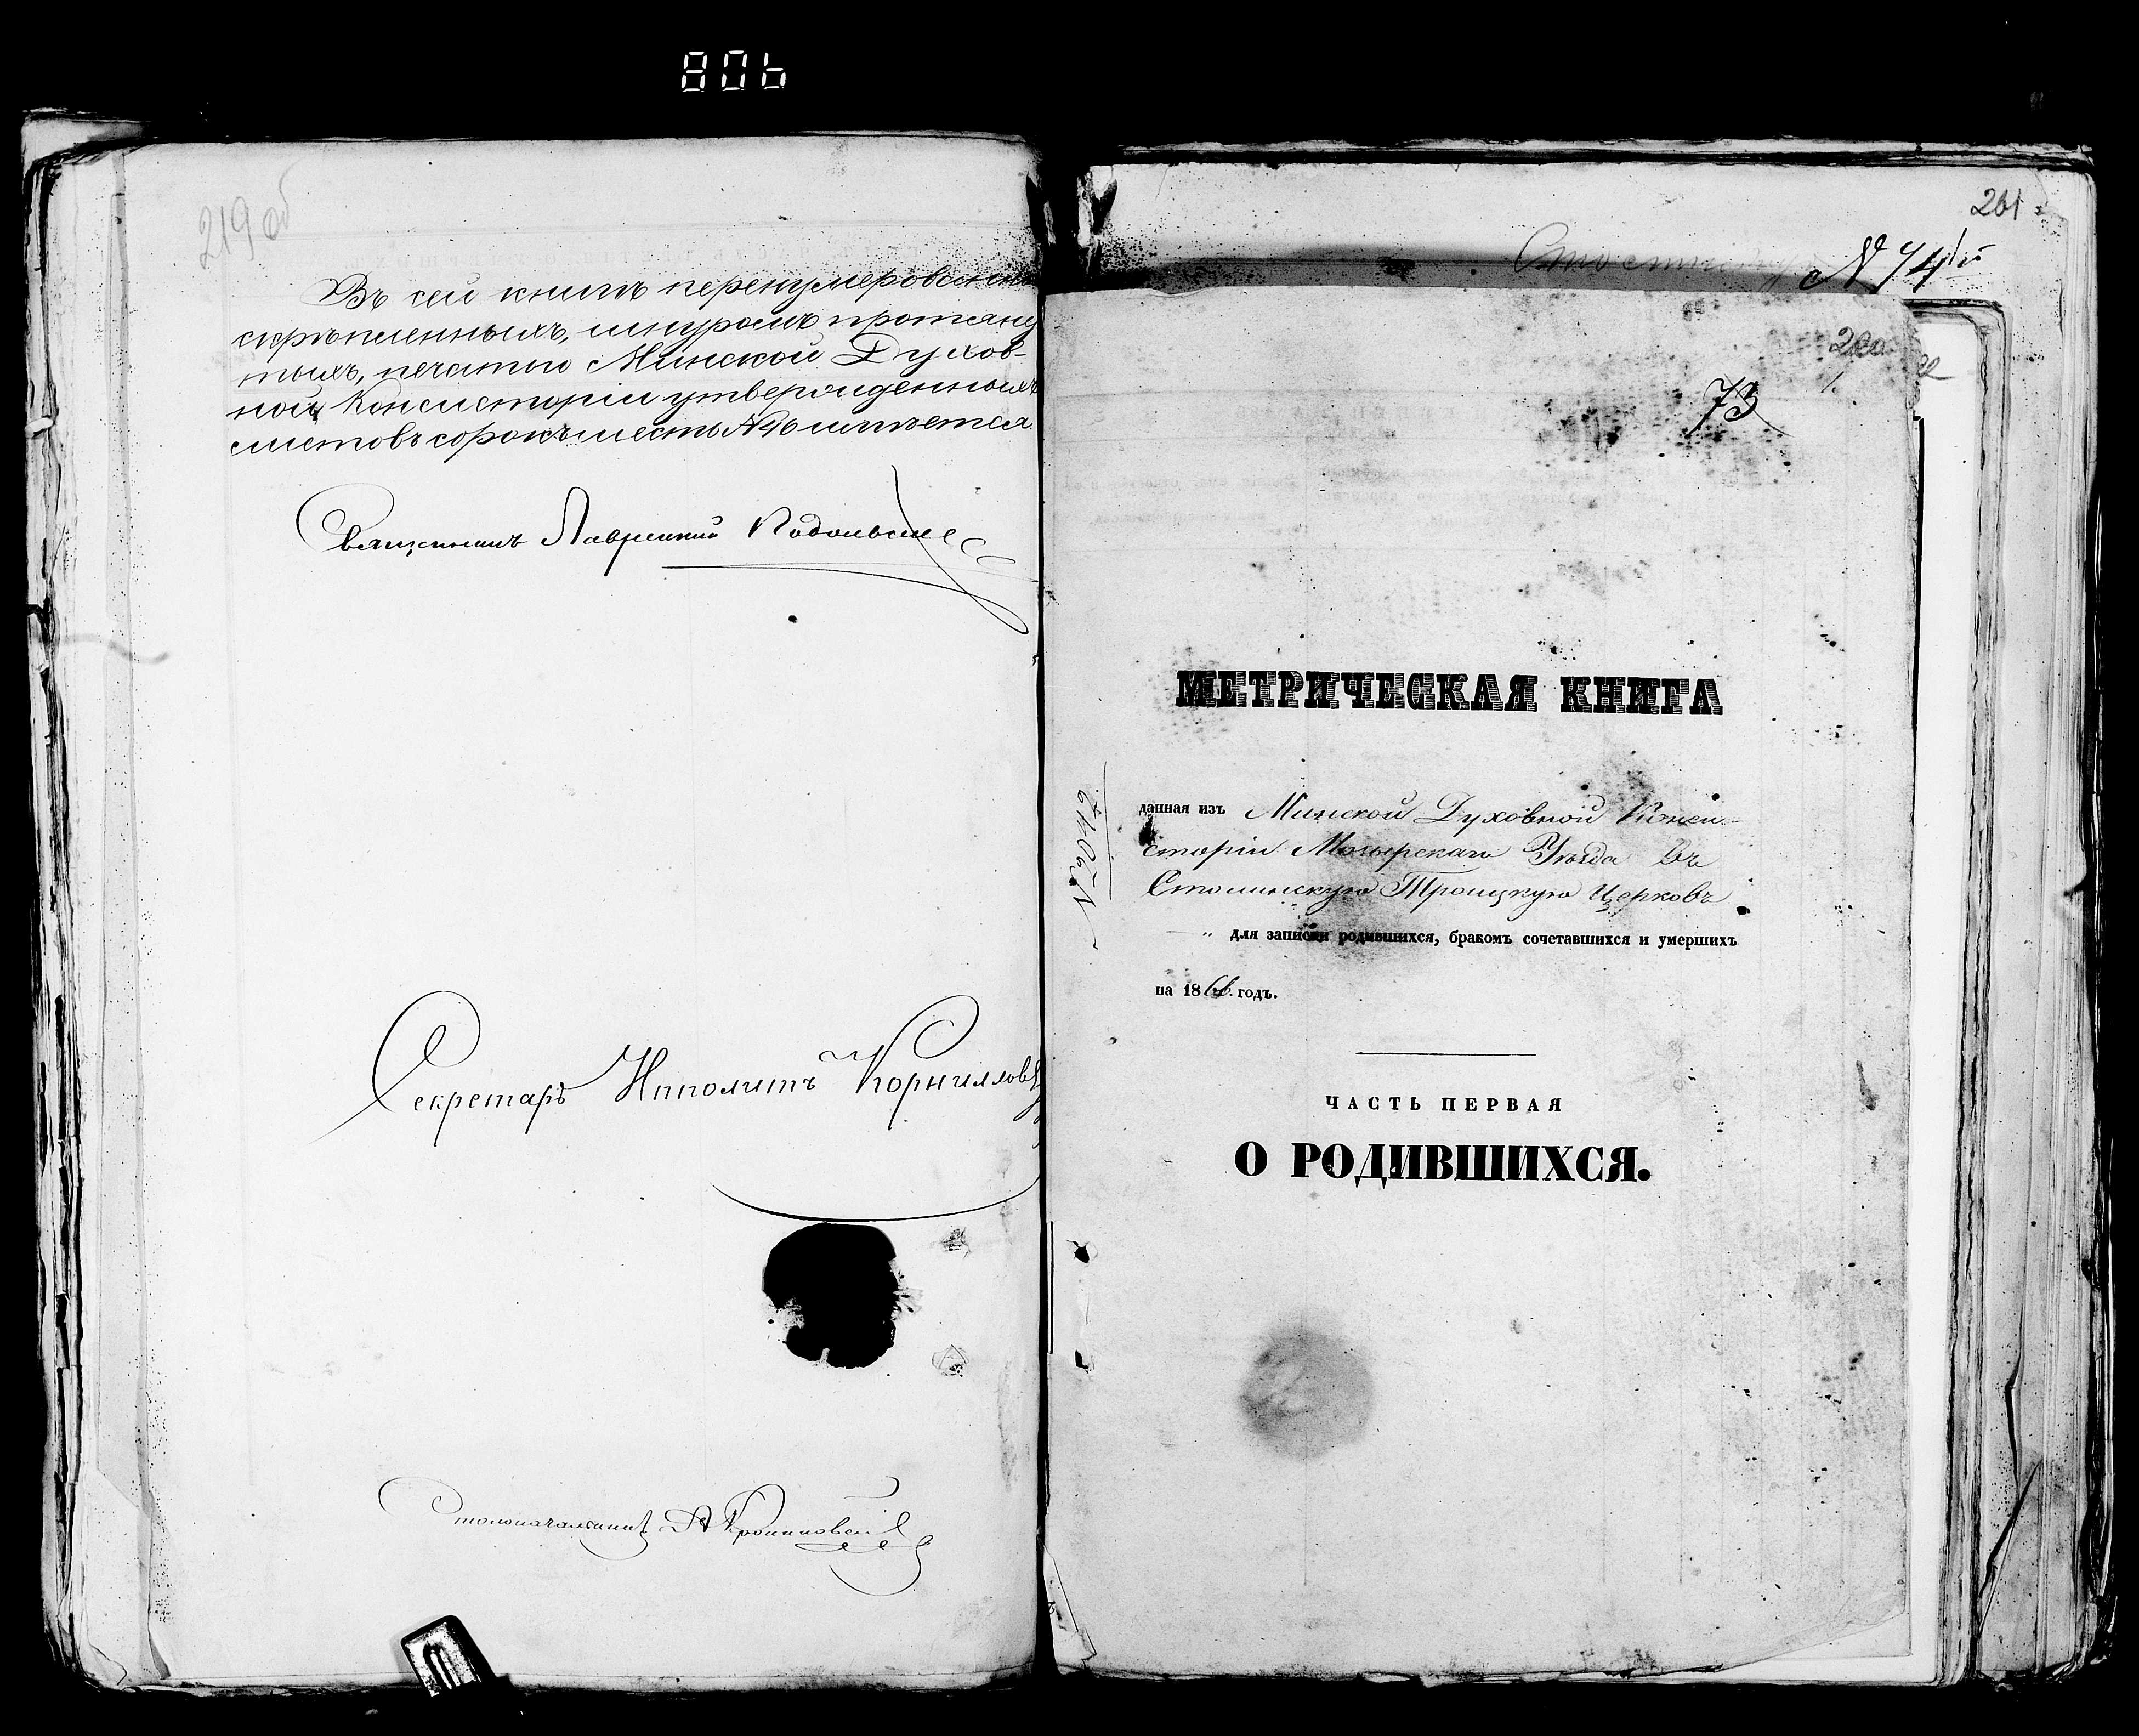 806
219 об
Въ сей книгѣ перенумерованны
скрѣпленныхъ, шнуромъ протяну
тыхъ, печатью Минской Духов-
ной Консисторіи утвержденныхъ
листовъ сорокъ шесть № 46 имѣется
Священникъ Лаврентій
Секретарь Ипполитъ Корнилловъ
Столоначальникъ А
261
№ 74й
220
73
МЕТРИЧЕСКАЯ КНИГА
данная изъ Минской Духовной Конси-
сторіи Мозырскаго Уѣзда въ
Столинскую Троицкую Церковь
для записки родившихся, бракомъ сочетавшихся и умершихъ
на 1866 годъ.
ЧАСТЬ ПЕРВАЯ
О РОДИВШИХСЯ.